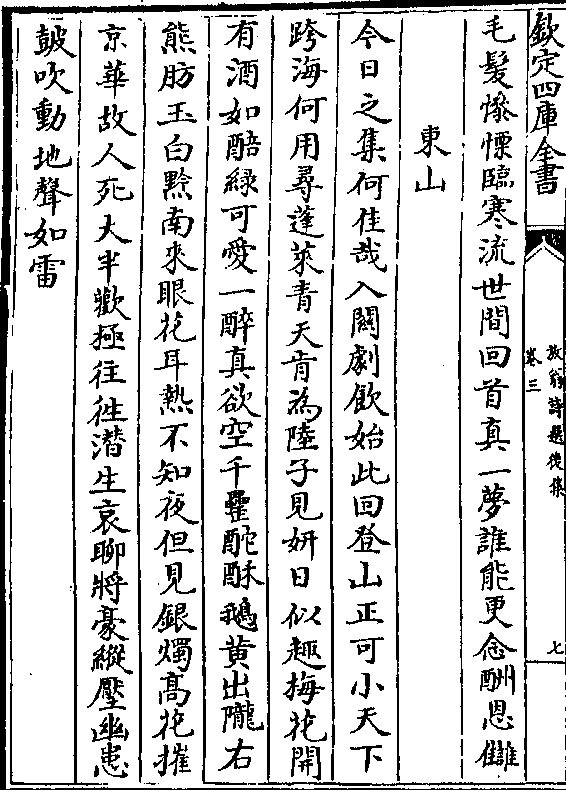 欽定四庫全書
放翁詩選後集
卷三
七
毛髮慘慄臨寒流世間回首真一夢誰能更念酬恩讎
東山
今日之集何佳哉入闗劇飲始此回登山正可小天下
跨海何用尋蓬萊青天肯為陸子見妍日似趣梅花開
有酒如醅綠可愛一醉真欲空千罍酡酥鵝黄出隴右
熊肪玉白黔南來眼花耳熱不知夜但見銀燭髙花摧
京華故人死大半歡極往徃潜生哀聊將豪縱壓幽患
皷吹動地聲如雷